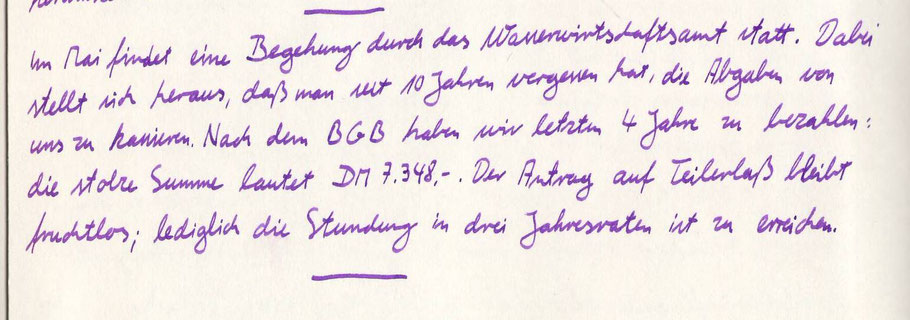 Im Mai findet eine Begehung durch das Wasserwirtschaftsamt statt. Dabei
stellt sich heraus, daß man seit 10 Jahren vergessen hat, die Abgaben von
uns zu kassieren. Nach dem BGB haben wir letzten 4 Jahre zu bezahlen:
die stolze Summe lautet DM 7.348,-. Der Antrag auf Teilerlaß bleibt
fruchtlos; lediglich die Stundung in drei Jahresraten ist zu erreichen.